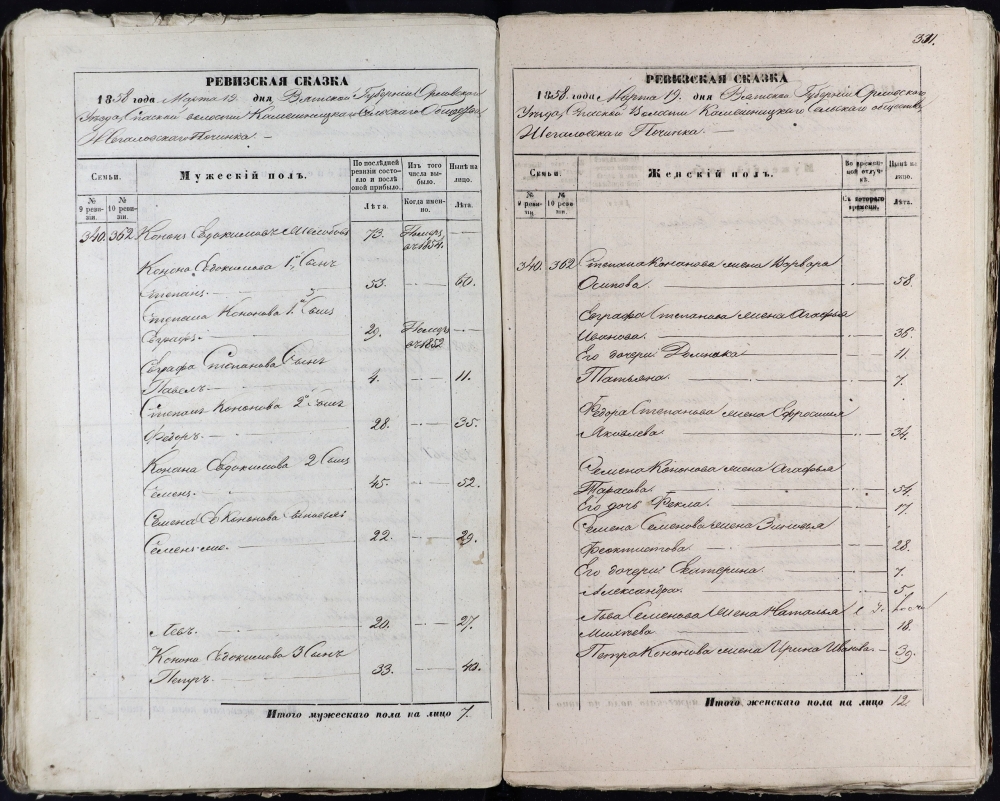 РЕВИЗСКАЯ СКАЗКА
1858 года Марта 19. дня Вятской Губернiи Орловскаго
Уѣзда, Спаской волости Камешницкаго Сельскаго Общества
Жегаловскаго Починка. —
Семьи.
Мужескiй полъ.
По послѣдней ревизiи состояло и послѣ оной прибыло.
Изъ того числа выбыло.
Нынѣ на лицо.
№ 9 ревизiи.
№ 10 ревизiи.
Лѣта.
Когда именно.
Лѣта.
340. 362. Кононъ Евдокимовъ 73. Померъ
въ 1854.
Конона Евдокимова 1й Сынъ
Степанъ. 53. 60.
Степана Кононова 1й Сынъ
Евграфъ. 29. Померъ
въ 1852
Евграфа Степанова Сынъ
Павелъ. 4. 11.
Степана Кононова 2й Сынъ
Федоръ. 28. 35.
Конона Евдокимова 2 Сынъ
Семенъ. 45. 52.
Семена Кононова сыновья
Семенъ 22. 29.
Левъ. 20. 27.
Конона Евдокимова 3 Сынъ
Петръ. 33. 40.
Итого мужескаго пола на лицо 7.
331.
РЕВИЗСКАЯ СКАЗКА
1858 года Марта 19. дня Вятской Губернiи Орловскаго
Уѣзда, Спаской Волости Камешницкаго Сельскаго общества
Жегаловскаго Починка. —
Семьи.
Женскiй полъ.
Во временной отлучкѣ.
Нынѣ на лицо.
№ 9 ревизiи.
№ 10 ревизiи.
Съ котораго времени.
Лѣта.
340. 362 Степана Кононова жена Варвара
Осипова. 58.
Евграфа Степанова жена Агафья
Иванова. 36.
Его дочери 11.
Татьяна. 7.
Федора Степанова жена Ефросинья
Яковлева. 34.
Семена Кононова жена Агафья
Тарасова. 54.
Его дочь Фекла. 17.
Семена Семенова жена Зиновья
Феоктистова. 28.
Его дочери Екатерина. 7.
Александра. 5.
Льва Семенова жена Наталья
18.
Петра Кононова жена Ирина Иванова. 39.
Итого женскаго пола на лицо 12.